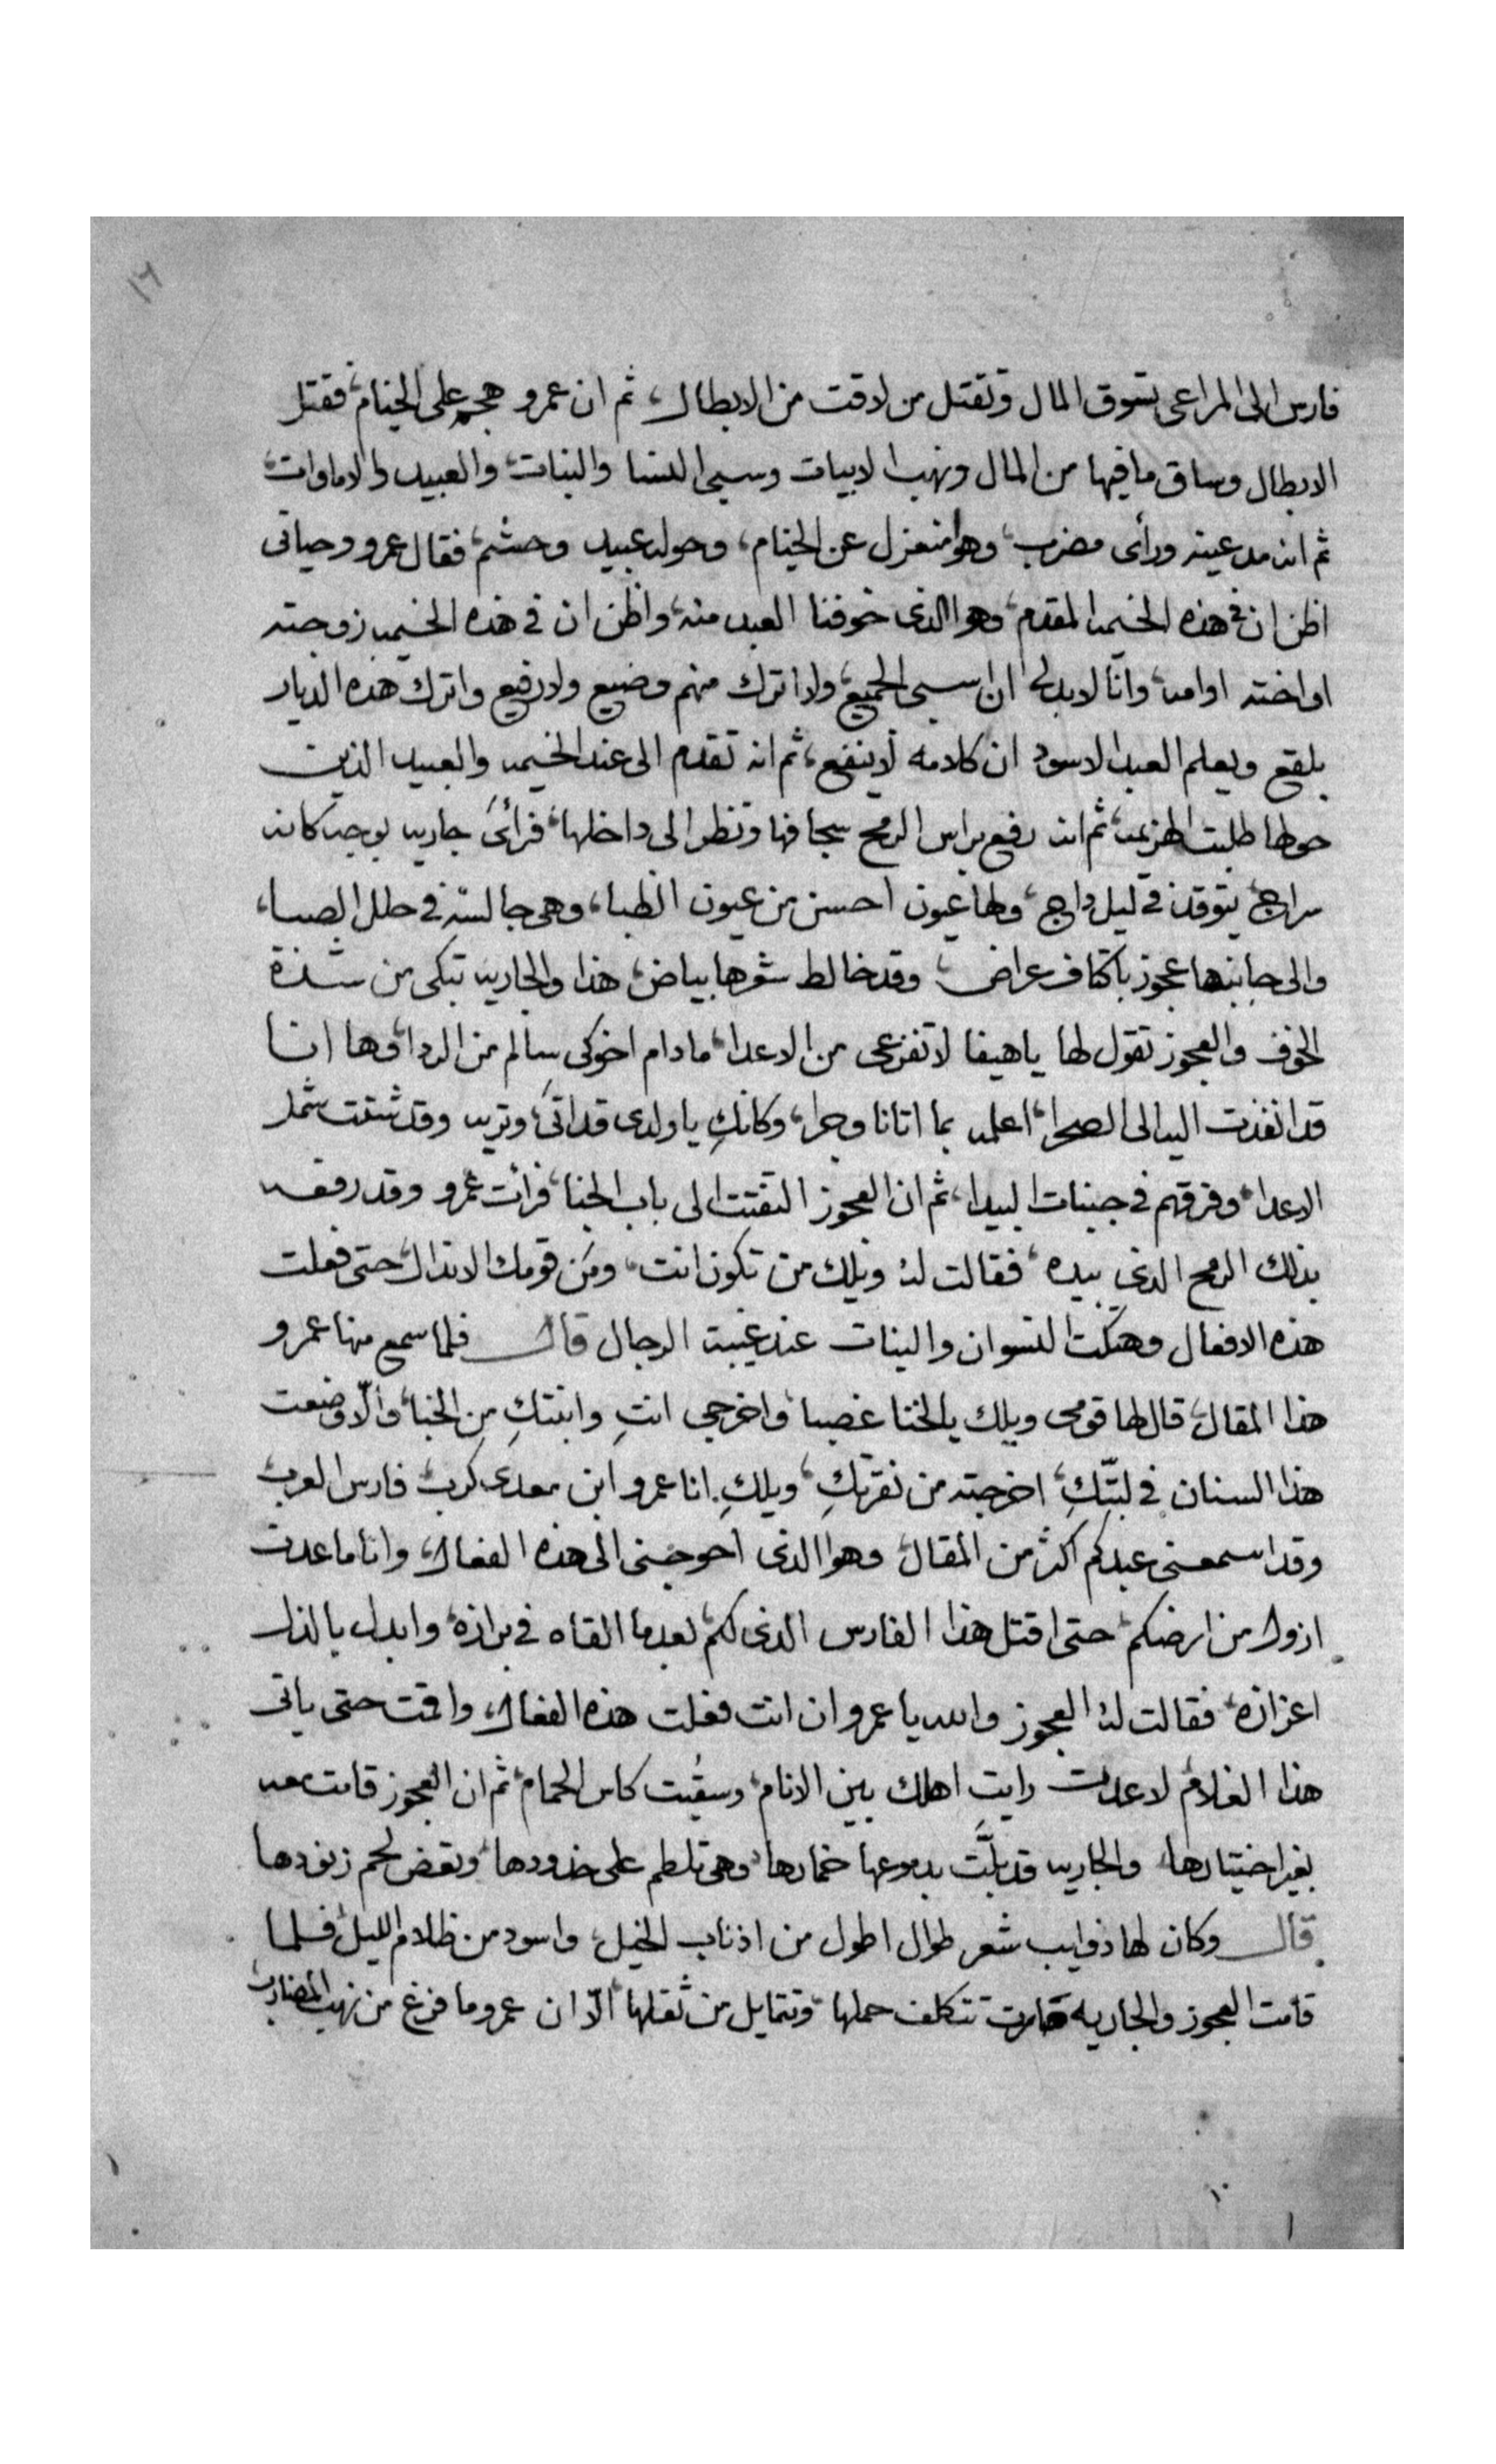 ١٦
فارس الى المراعى تسوق المال وتقتل من لاقت من الابطال، ثم ان عمرو هجم على الخيام، فقتل
الابطال وساق ما فيها من المال ونهب الابيات وسبى النسا والبنات، والعبيد والاماوات،
ثم انه مد عينه ورأى مضرب، وهوا منعزل عن الخيام، وحوله عبيد وحشم، فقال عمرو وحياتى
اظن ان فى هذه الخيمه المقدم، وهوا الذى خوفنا العبد منه، واظن ان فى هذه الخيمه زوجته
او اخته او امه، وانا لا بد لى ان اسبى الجميع، ولا اترك منهم وضيع ولا رفيع واترك هذه الديار
بلقع ويعلم العبد الاسود ان كلامه لا ينفع، ثم انه تقدم الى عند الخيمه والعبيد الذين
حولها طلبت الهزيمه، ثم انه رفع براس الرمح سجافها ونظر الى داخلها، فرأى جاريه بوجه كانه
سراج، يتوقد فى ليل داج، ولها عيون احسن من عيون الظبا، وهى جالسة فى حلل الصبا،
والى جانبها عجوز باكتاف عراض، وقد خالط شعرها بياض، هذا والجاريه تبكى من شدة
الخوف والعجوز تقول لها يا هيفا لا تفزعى من الاعدا، ما دام اخوكى سالم من الردا، وها انا
قد انفذت اليه الى الصحرا، اعلمه بما اتانا وجرا، وكانكِ يا ولدى قد اتى، وتريه وقد شتت شمل
الاعدا، وفرقهم فى جنبات البيدا، ثم ان العجوز التفتت الى باب الخبا، فرأت عمرو وقد رفعه
بذلك الرمح الذى بيده، فقالت له ويلك من تكون انت، ومَن قومك الانذال، حتى فعلت
هذه الافعال وهتكت النسوان والبنات عند غيبة الرجال قال فلما سمع منها عمرو
هذا المقال، قال لها قومى ويلك يا لخنا غصبا، واخرجى انتِ وابنتكِ مِن الخبا، والّا وضعت
هذا السنان فى لبّتكِ، اخرجته من نقرتكِ، ويلكِ انا عمرو ابن معدى كرب، فارس العرب،
وقد اسمعنى عبدكم اكثر من المقال، وهوا الذى احوجنى الى هذه الفعال، وانا ما عدت
ازول من ارضكم، حتى اقتل هذا الفارس الذى لكم، بعد ما القاه فى برازه، وابدل بالذل
اعزازه، فقالت له العجوز والله يا عمرو ان انت فعلت هذه الفعال، واقمت حتى ياتى
هذا الغلام لا عدت رايت اهلك بين الانام، وسقُيت كاس الحمام، ثم ان العجوز قامت معه
بغير اختيارها، والجاريه قد بلَّت بدموعها خمارها، وهى تلطم على خدودها، وتعض لحم زنودها
قال وكان لها ذوايب شعر طوال اطول من اذناب الخيل، واسود من ظلام الليل، فلما
قامت العجوز والجاريه صارت تتكلف حملها، وتتمايل من ثقلها، الّا ان عمرو ما فرغ من نهب المضارب،